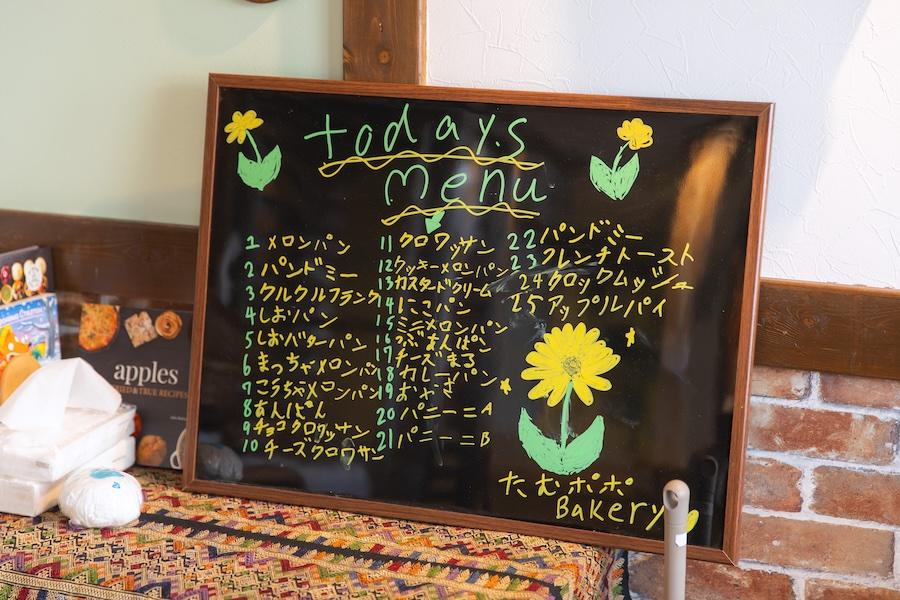 todays
menu
1 メロンパン
2 パンドミー
3 クルクルフランク
4 しおパン
5 しおバターパン
6 まっちゃメロンパン
7 こうちゃメロンパン
8 あんぱん
9 チョコクロワッサン
10 チーズクロワサン
11 クロワッサン
12 クッキーメロンパン
13 カスタードクリーム
14 にこパン
15 ミニメロンパン
16 つぶあんぱん
17 チーズまる
18 カレーパン
19 おやき
20 パニーニA
21 パニーニB
22 パンドミー
23 フレンチトースト
24 クロックムッシュ
25 アップルパイ
たむポポ
Bakery
apples
TRIED & TRUE RECIPES